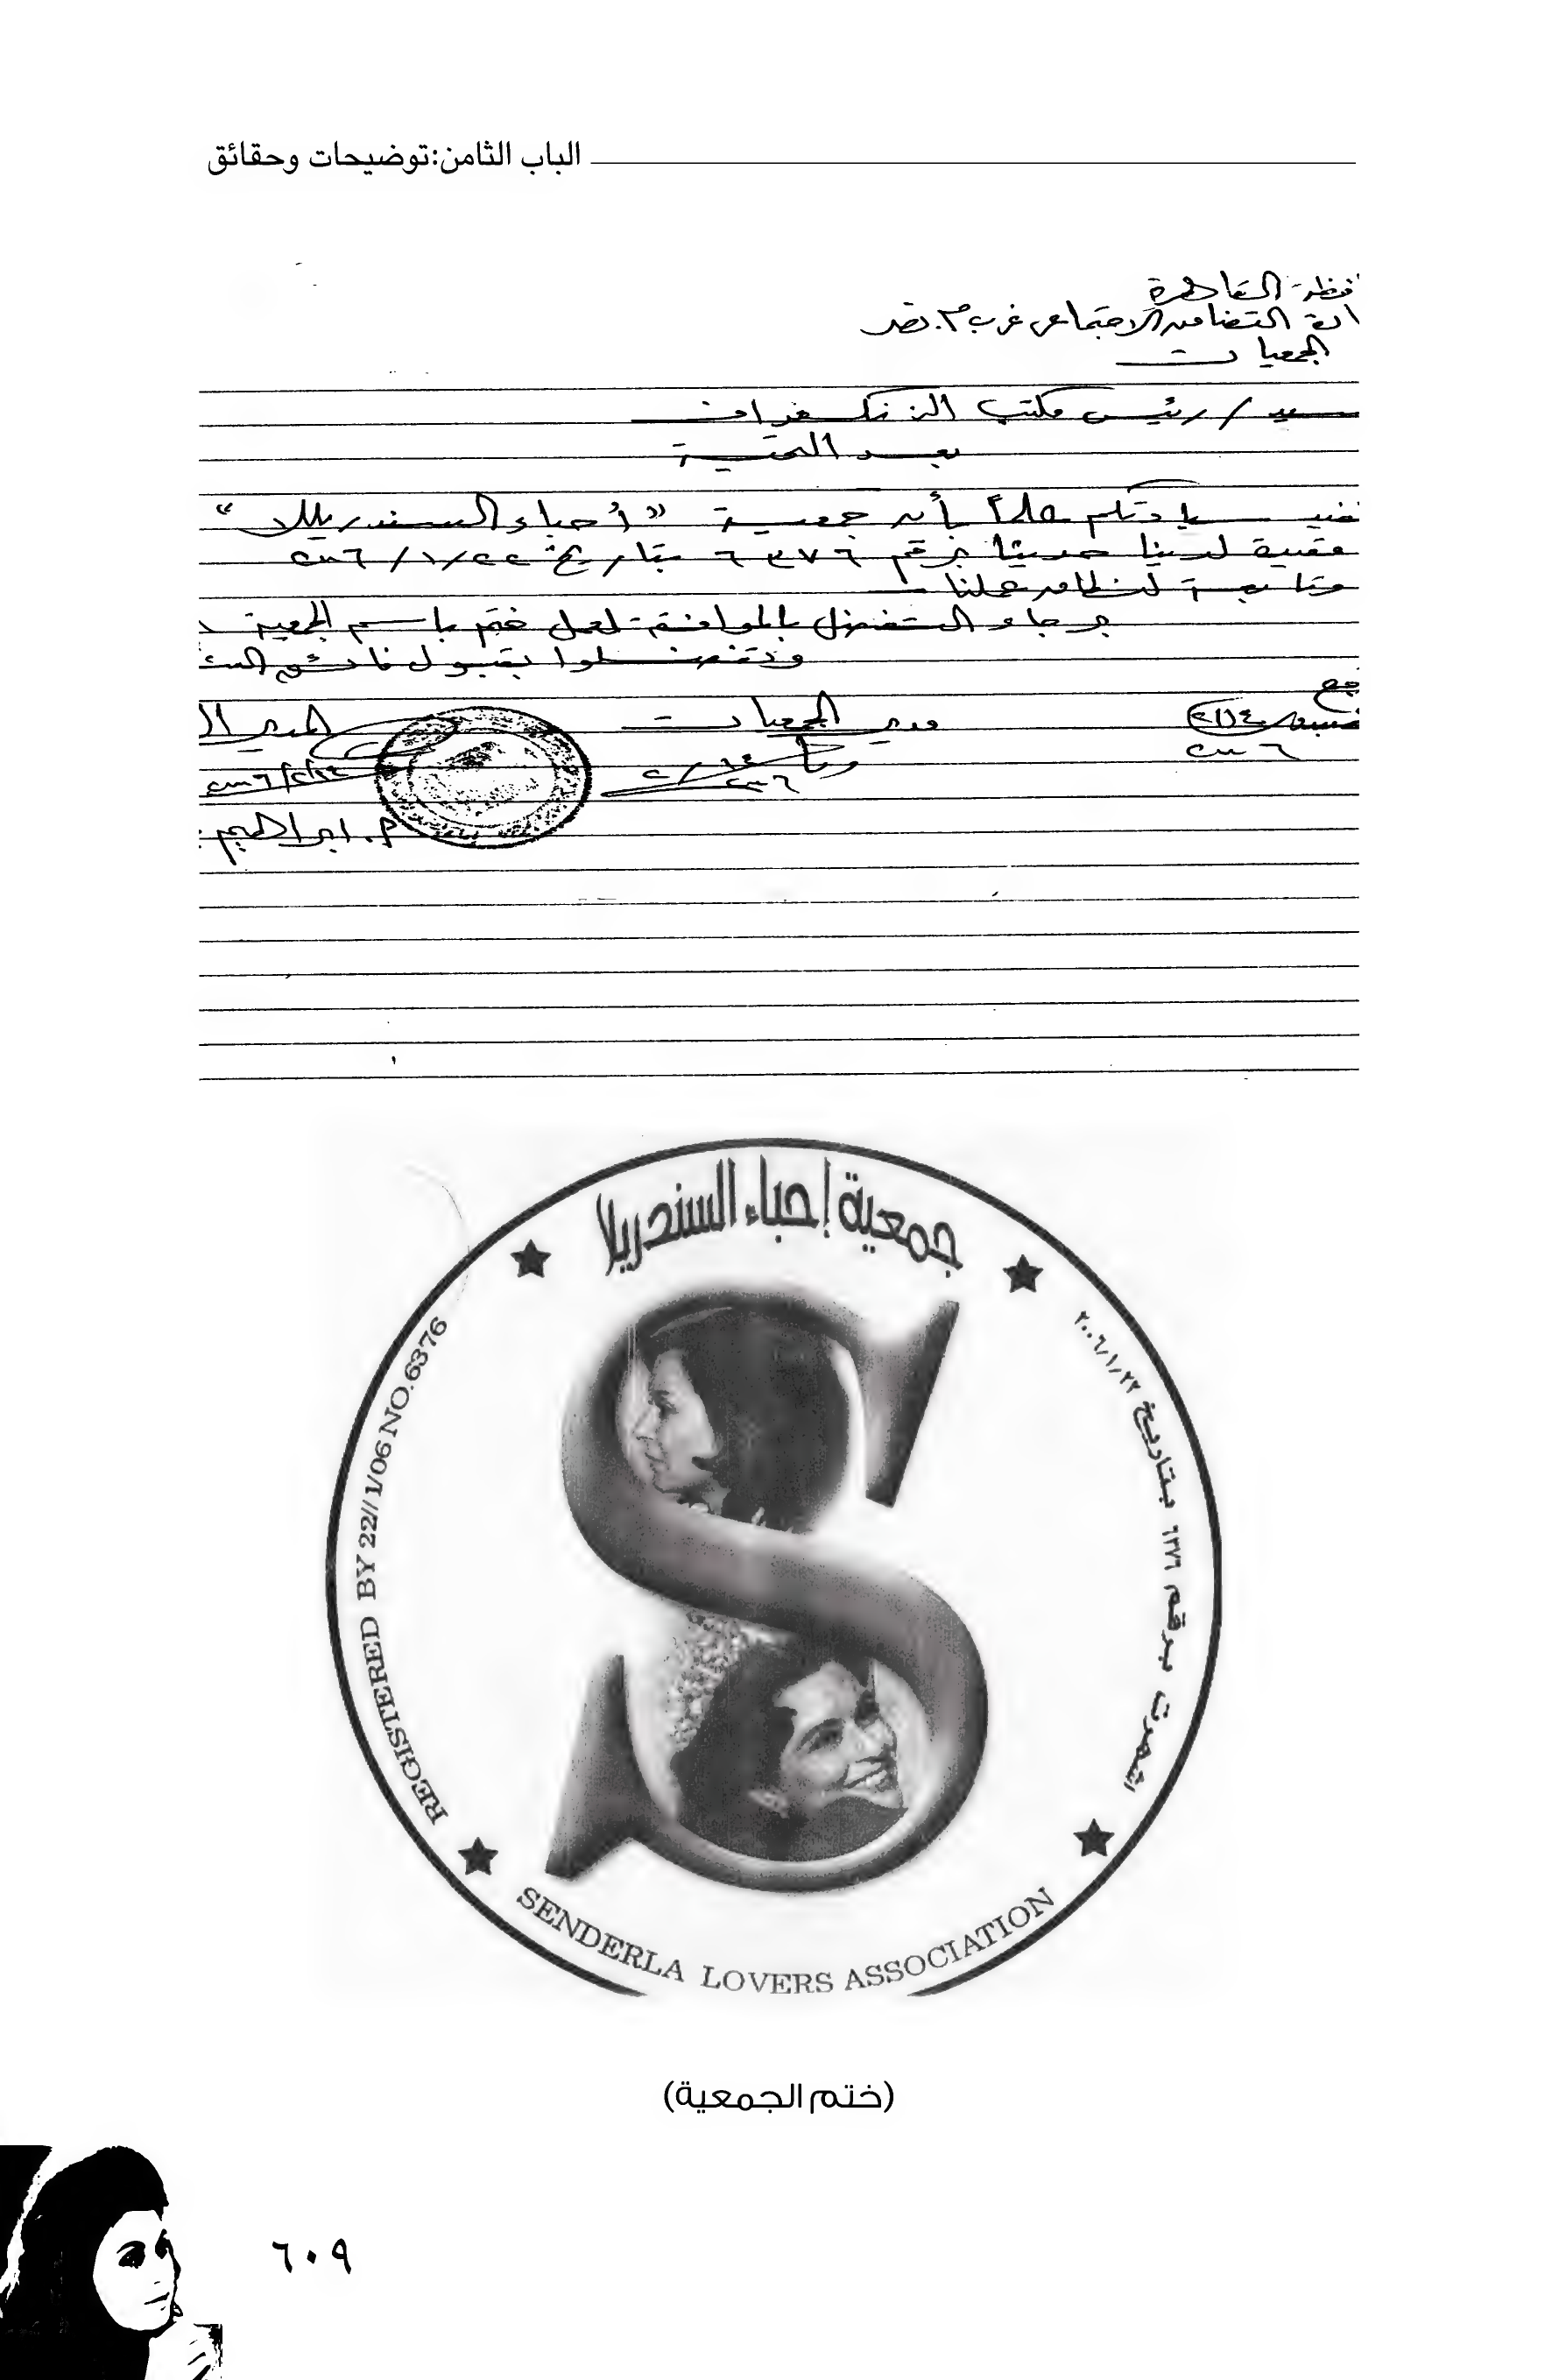 الباب الثامن:توضيحات وحقائق
القاهرة
التضامن الاجتماعى غرب م.نصر
الجمعيات
رئيس مكتب
بعد التحية
سيادتكم علماً بأن جمعية "أحباء السندريللا"
لدينا حديثا برقم ٦٣٧٦ بتاريخ ٢٢/١/٢٠٠٦
برجاء التفضل بالموافقة لعمل ختم باسم الجمعية
وتفضلوا بقبول فائق
مدير الجمعيات
م. ابراهيم
جمعية إحباء السندريلا
اشهرت برقم ٦٣٧٦ بتاريخ ٢٠٠٦/١/٢٢
REGISTERED BY 22//1/06 NO.6376
SENDERLA LOVERS ASSOCIATION
(ختم الجمعية)
٦٠٩